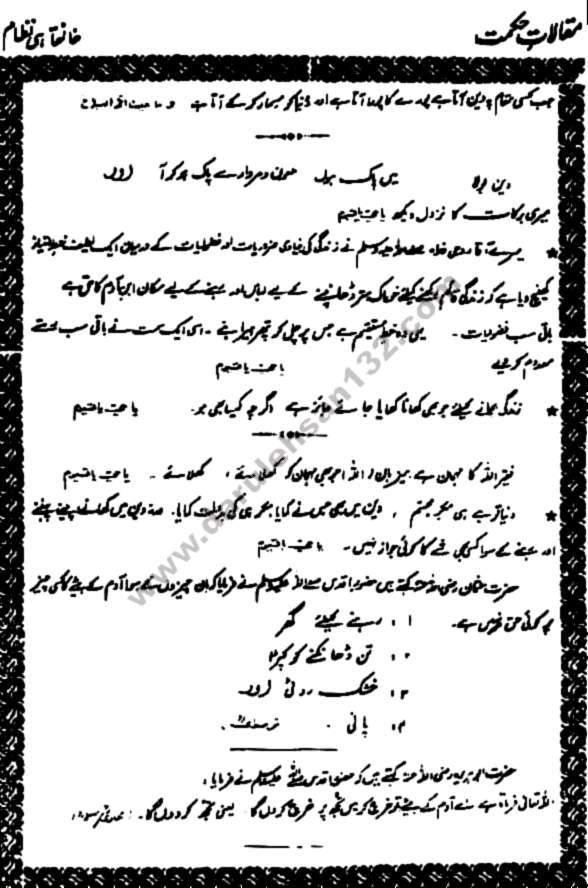 مقالاتِ حکمت
خانقاہی نظام
جب کسی مقام پہ دین آتا ہے پورے کا پورا آتا ہے اور دُنیا کو مسمار کر کے آتا ہے
دین پاک ہوں سے پاک ہو کر آ اور
میری برکات کا نزول دیکھ یا حیّ یا قیوم
★ میرے آقا روحی فداہ صلی اللہ علیہ وسلم نے زندگی کی بنیادی ضروریات اور فضولیات کے درمیان ایک لطیف خطِ امتیاز
کھینچ دیا ہے کہ زندگی قائم رکھنے کیلئے خوراک ستر ڈھانپنے کے لیے لباس اور رہنے کے لیے مکان ابنِ آدم کا حق ہے
باقی سب فضولیات۔ یہی وہ خطِ مستقیم ہے جس پر چل کر
معدوم کر دیے یا حیّ یا قیوم
★ زندگی بچانے کیلئے جو بھی کھانا کھایا جائے جائز ہے اگرچہ کیسا بھی ہو۔ یا حیّ یا قیوم
فقیر اللہ کا مہمان ہے میزبان اللہ جو بھی مہمان کو کھلائے، کھلائے۔ یا حیّ یا قیوم
★ دنیا تو ہے ہی مکر مجسّم، دین میں بھی جس نے کمایا مکر ہی کی بدولت کمایا۔ ورنہ دین میں کھانے پینے پہننے
اور رہنے کے سوا کسی بھی شے کا کوئی جواز نہیں۔ یا حیّ یا قیوم
حضرت عثمان رضی اللہ عنہ کہتے ہیں حضورِ اقدس صلی اللہ علیہ وسلم نے فرمایا کہ ان چیزوں کے سوا آدم کے بیٹے کا کسی چیز
پر کوئی حق نہیں ہے۔ ۱: رہنے کیلئے گھر
۲: تن ڈھانکنے کو کپڑا
۳: خشک روٹی اور
۴: پانی
حضرت ابوہریرہ رضی اللہ عنہ کہتے ہیں کہ حضور اقدس صلی اللہ علیہ وسلم نے فرمایا:
اللہ تعالیٰ فرماتا ہے اے آدم کے بیٹے تو خرچ کر میں تجھ پر خرچ کروں گا یعنی تجھ کو دوں گا۔
www.darulehsan132.com